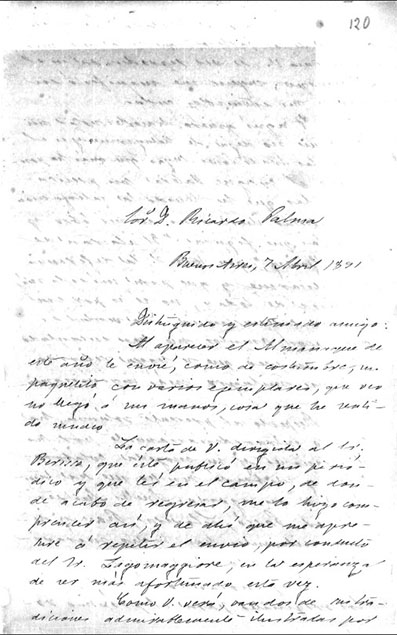 120
Sor. D. Ricardo Palma
Buenos Aires, 7 Abril 1891
Distinguido y estimado amigo:
Al aparecer el Almanaque de
este año le envié, como de costumbre, un
paquetito con varios ejemplares, que veo
no llegó á sus manos, cosa que he senti-
do mucho
La carta de V. dirigida al Sr.
que este publicó en un perió-
dico y que leí en el campo, de don-
de acabo de regresar, me lo hizo com-
prender así, y de ahí que me apre-
suré á repetir el envio, por conducto
del Sr. Lagomaggiore, en la esperanza
de ser más afortunado esta vez.
Como V. verá, van dos de sus tra-
diciones admirablemente ilustradas por